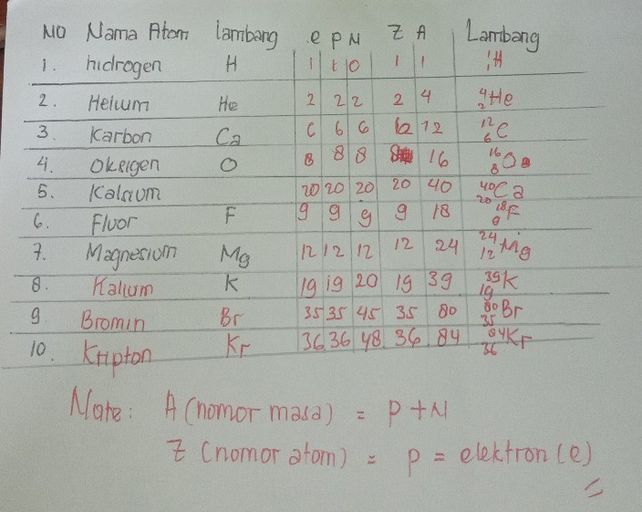 NO Nama Atom lambang e P N Z A Lambang
1. hidrogen H 1 1 0 1 1 ¹₁H
2. Helium He 2 2 2 2 4 ⁴₂He
3. Karbon Ca 6 6 6 6 12 ¹²₆C
4. Oksigen O 8 8 8 8 16 ¹⁶₈O
5. Kalsium 20 20 20 20 40 ⁴⁰₂₀Ca
6. Fluor F 9 9 9 9 18 ¹⁸₉F
7. Magnesium Mg 12 12 12 12 24 ²⁴₁₂Mg
8. Kalium K 19 19 20 19 39 ³⁹₁₉K
9 Bromin Br 35 35 45 35 80 ⁸⁰₃₅Br
10. Kripton Kr 36 36 48 36 84 ⁸⁴₃₆Kr
Note: A (nomor masa) = P + N
Z (nomor atom) = P = elektron (e)